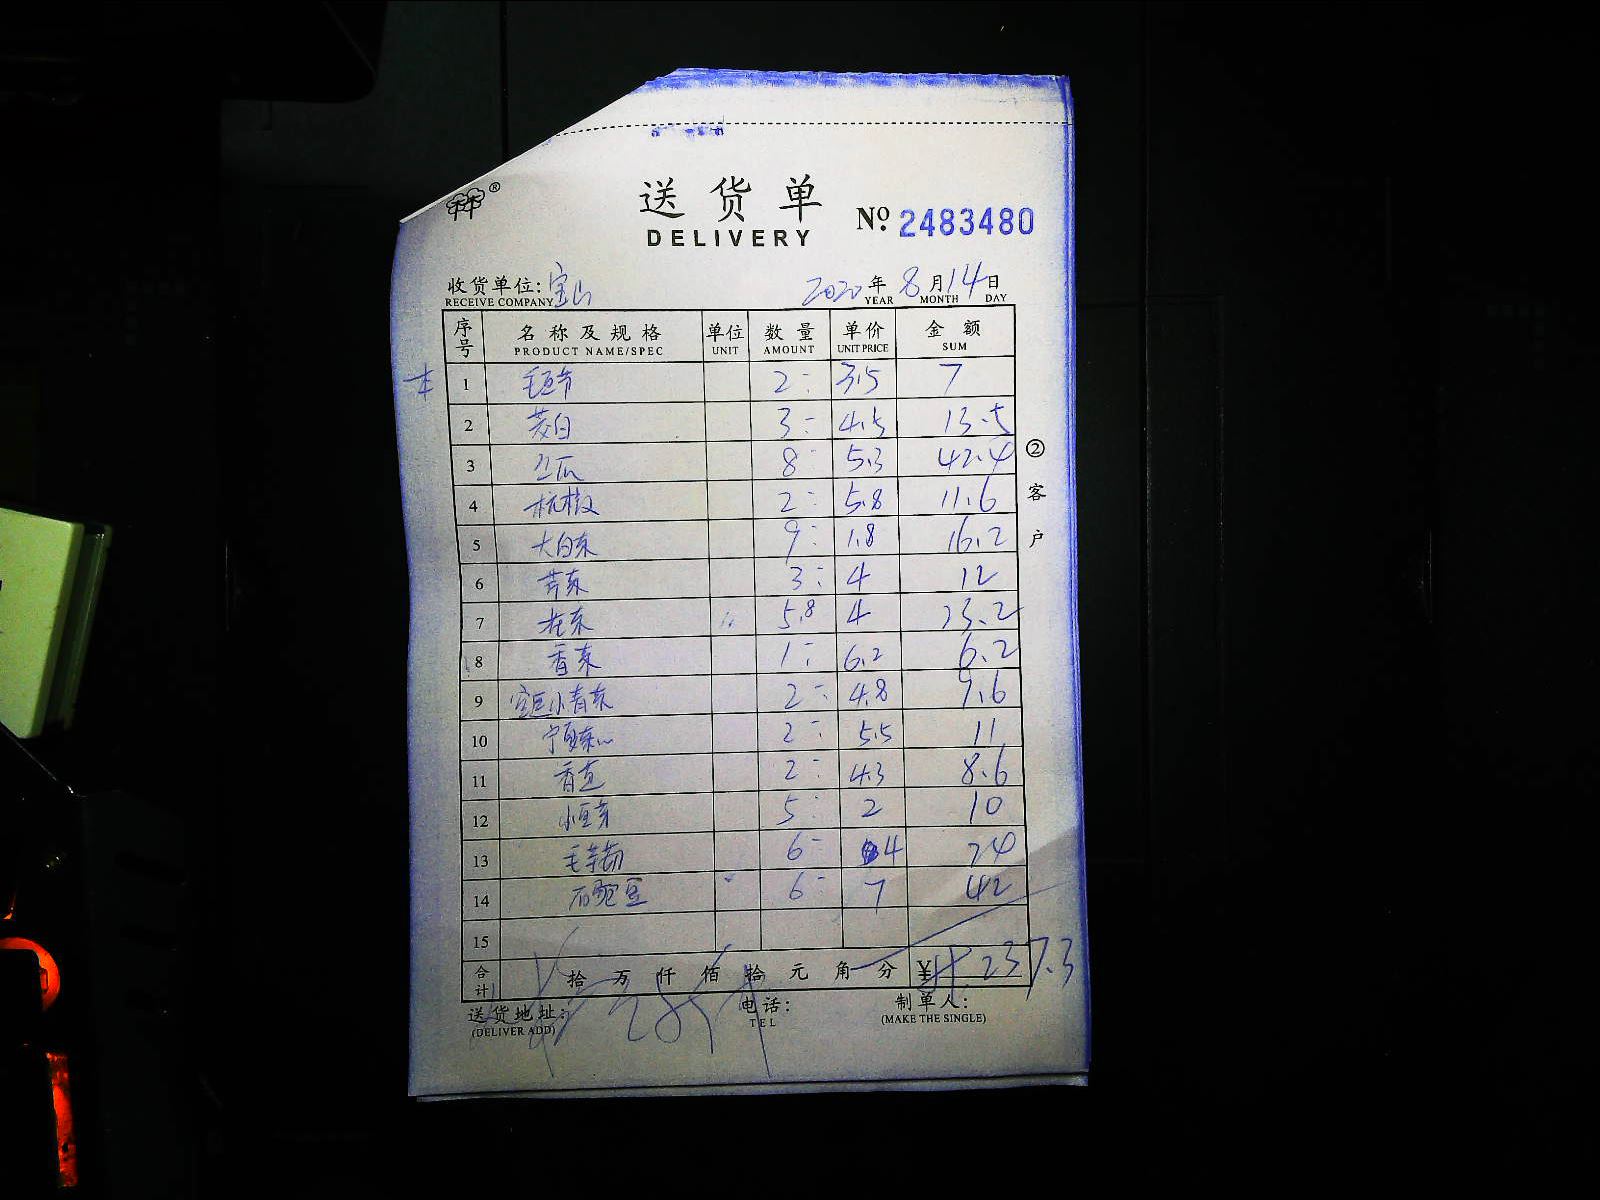 ®
送货单
DELIVERY
№ 2483480
收货单位: 宝山 2020 年 8 月 14 日
RECEIVE COMPANY YEAR MONTH DAY
序号 名称及规格 单位 数量 单价 金额
PRODUCT NAME/SPEC UNIT AMOUNT UNIT PRICE SUM
1 毛豆节 2 3.5 7
2 茭白 3 4.5 13.5
3 瓜 8 5.3 42.4
4 杭椒 2 5.8 11.6
5 大白菜 9 1.8 16.2
6 芹菜 3 4 12
7 花菜 5.8 4 23.2
8 香菜 1 6.2 6.2
9 小青菜 2 4.8 9.6
10 宁夏菜心 2 5.5 11
11 香葱 2 4.3 8.6
12 小豆芽 5 2 10
13 毛芋艿 6 4 24
14 豌豆 6 7 42
15
合计 拾 万 仟 佰 拾 元 角 分 ¥ 237.3
送货地址: 电话: 制单人:
(DELIVER ADD) TEL (MAKE THE SINGLE)
②客户